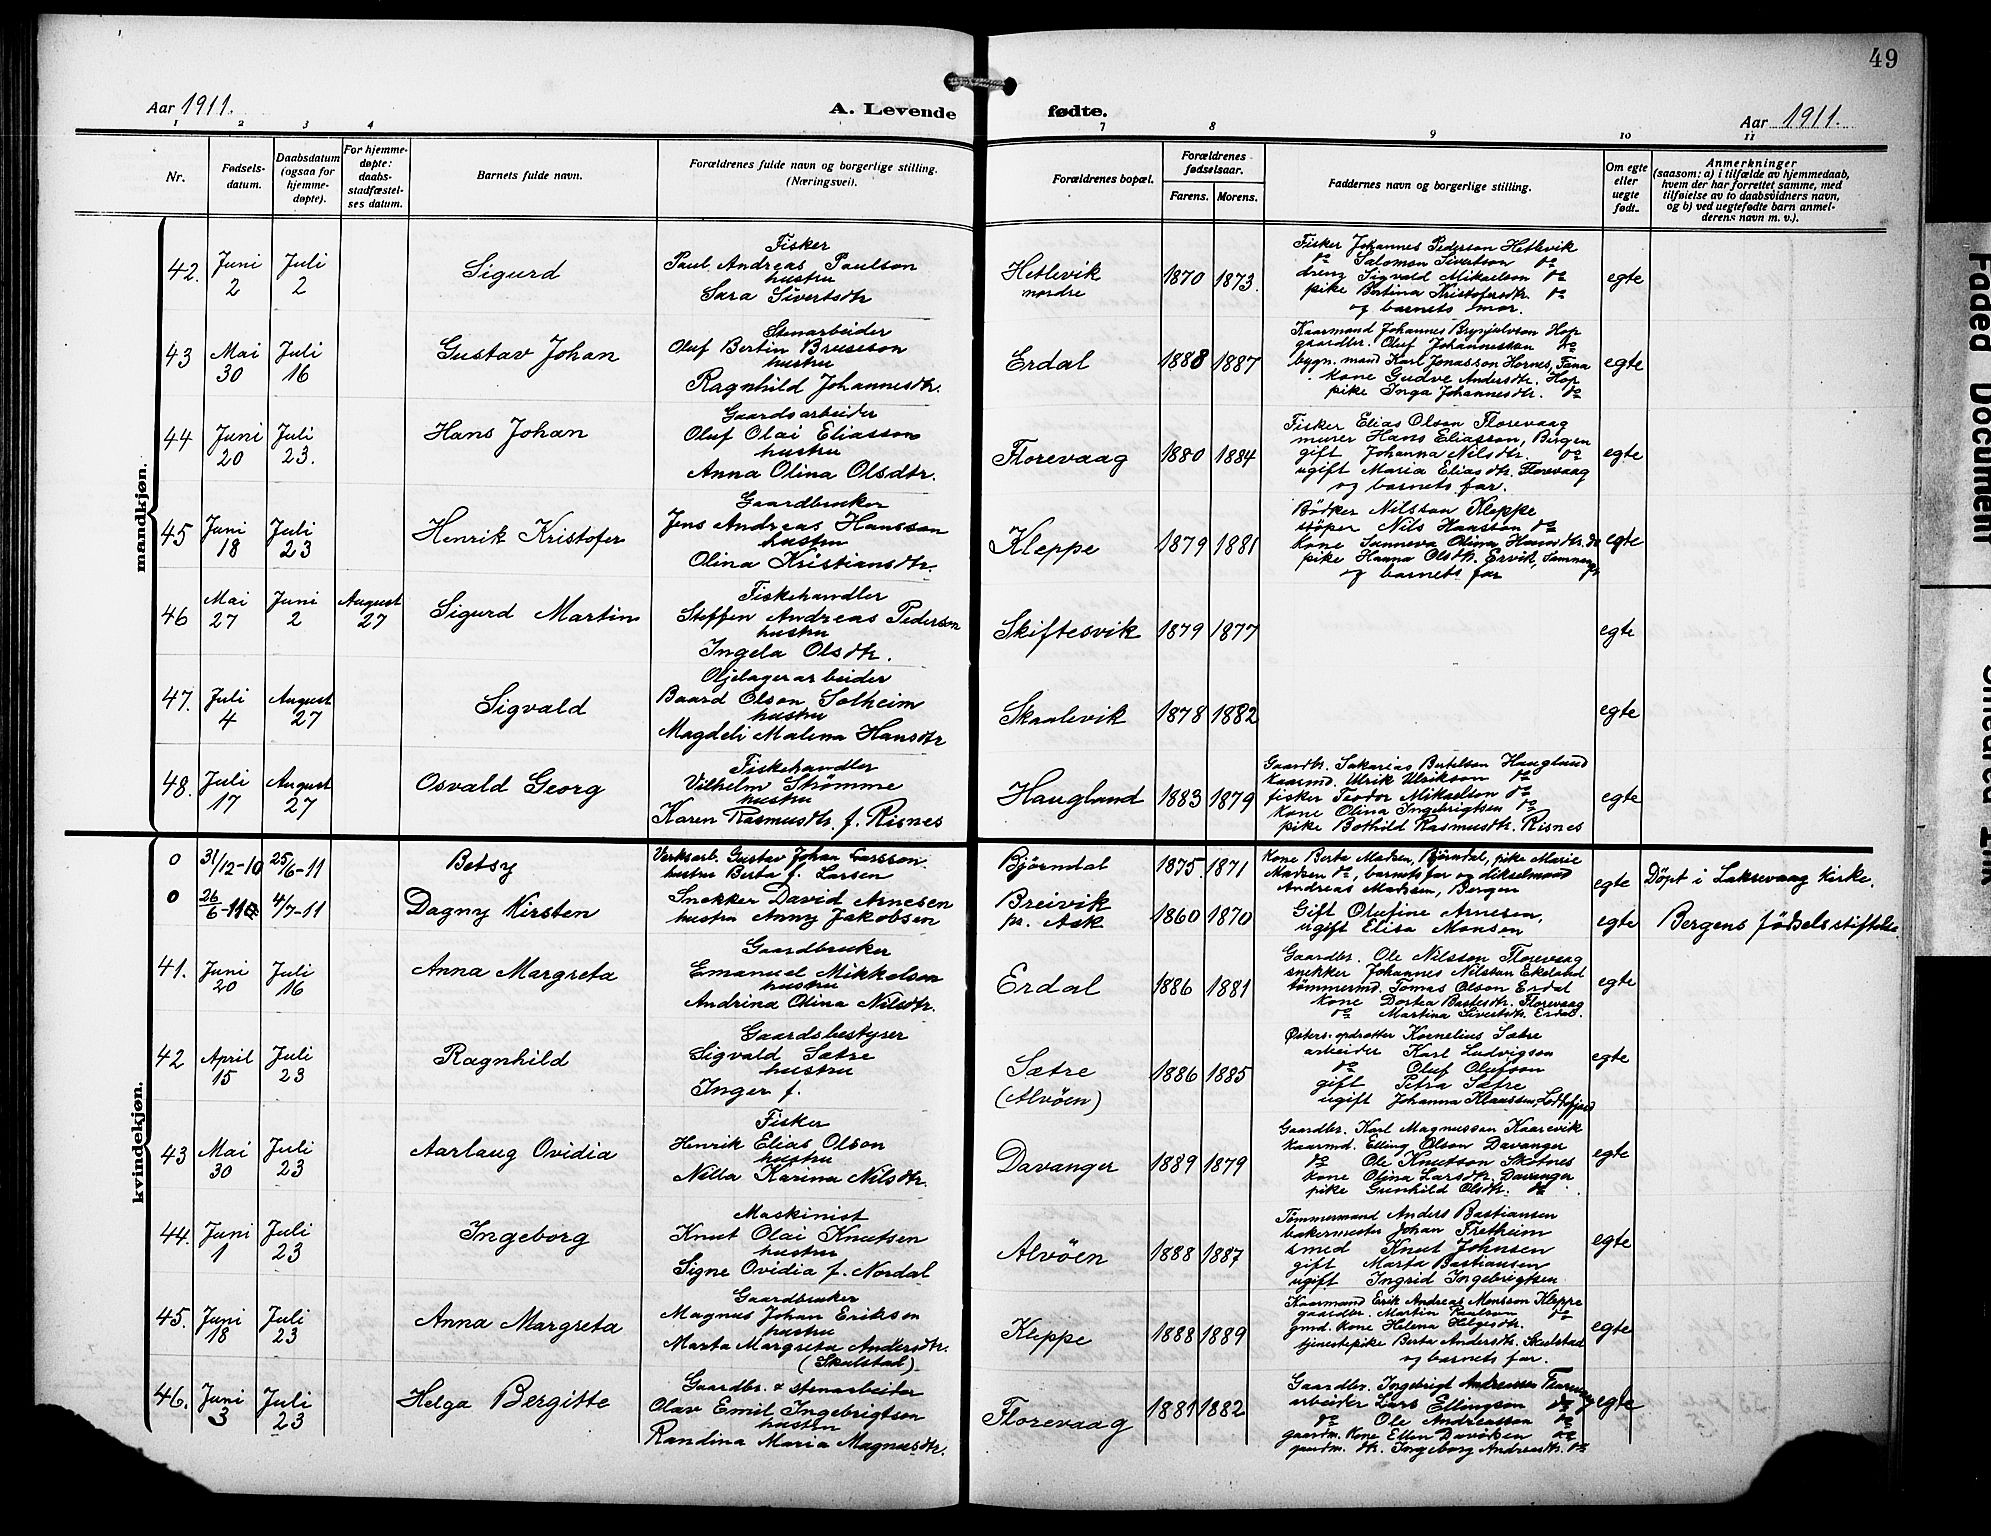 49
Aar 1911. A. Levende fødte. Aar 1911.
1 2 3 4 7 8 9 10 11
Nr.
Fødsels-
datum.
Daabsdatum
(ogsaa for
hjemme-
døpte).
For hjemme-
døpte:
daabs-
stadfæstel-
ses datum.
Barnets fulde navn.
Forældrenes fulde navn og borgerlige stilling.
(Næringsvei).
Forældrenes bopæl.
Forældrenes
fødselsaar.
Farens. Morens.
Faddernes navn og borgerlige stilling.
Om egte
eller
uegte
født.
Anmerkninger
(saasom: a) i tilfælde av hjemmedaab,
hvem der har forrettet samme, med
tilføielse av to daabsvidners navn,
og b) ved uegtefødte barn anmel-
derens navn m. v.).
mandkjøn.
42. Juni 2 Juli 2 Sigurd
Fisker
Paul Andreas Paulson
hustru
Sara Sivertsdtr
Hetlevik
nordre
1870 1873.
Fisker Johannes Pederson Hetlevik
do Salomon Sivertson do
dreng Sigvald Mikaelson do
pike Bertina Kristofersdtr. do
og barnets mor.
egte
43 Mai 30 Juli 16 Gustav Johan
Stenarbeider
Oluf Bertin Bruseson
hustru
Ragnhild Johannesdtr.
Erdal
1888 1887
Kaarmand Johannes Brynjulvson Hop
gaardbr. Oluf Johannesson do
bygn. mand Karl Jonasson Hornes, Fana
kone Gudve Andersdtr. Hop
pike Inga Johannesdtr. do
egte
44 Juni 20 Juli 23. Hans Johan
Gaardsarbeider
Oluf Olai Eliasson
hustru
Anna Olina Olsdtr.
Florevaag
1880 1884
Fisker Elias Olson Florevaag
murer Hans Eliasson, Bergen
gift Johanna Nilsdtr. do
ugift Maria Eliasdtr. Florevaag
og barnets far.
egte
45 Juni 18 Juli 23 Henrik Kristofer
Gaardbruker
Jens Andreas Hansson
hustru
Olina Kristiansdtr.
Kleppe
1879 1881
Bødker Nilsson Kleppe
støper Nils Hansson do
kone Sunneva Olina Hansdtr. do
pike Hanna Olsdtr. Ervik,
og barnets far
egte
46 Mai 27 Juni 2 August 27 Sigurd Martin
Fiskehandler
Steffen Andreas Pederson
hustru
Ingela Olsdtr.
Skiftesvik
1879 1877
egte
47. Juli 4 August 27 Sigvald
Oljelagerarbeider
Baard Olson Solheim
hustru
Magdeli Malena Hansdtr
Skaalevik
1878 1882
egte
48. Juli 17 August 27 Osvald Georg
Fiskehandler
Vilhelm Strømme
hustru
Karen Rasmusdtr. f. Risnes
Haugland
1883 1879
Gaardbr. Sakarias Bertelson Haugland
kaarmd. Ulrik Ulrikson do
fisker Teodor Mikaelson do
kone Olina Ingebrigtsen do
pike Bothild Rasmusdtr. Risnes
egte
kvindekjøn.
0 31/12-10 25/6-11 Betsy
Verksarb. Gustav Johan Larsson
hustru Berta f. Larsen
Bjørndal
1875. 1871
Kone Berta Madsen, Bjørndal, pike Marie
Madsen do, barnets far og dikselmand
Andreas Madsen, Bergen
egte Døpt i Laksevaag Kirke.
0 26/6-11 4/7-11 Dagny Kirsten
Snekker David Arnesen
hustru Anny Jakobsen
Breivik
pr. Ask
1860 1870
Gift Olufine Arnesen,
ugift Elisa Monsen
egte Bergens fødselsstiftelse.
41. Juni 20 Juli 16 Anna Margreta
Gaardbruker
Emanuel Mikkelson
hustru
Andrina Olina Nilsdtr.
Erdal
1886 1881
Gaardbr. Ole Nilsson Florevaag
snekker Johannes Nilsson Ekeland
tømmermd. Tomas Olson Erdal
kone Dortea Bastesdtr. Florevaag
do Martina Sivertsdtr. Erdal.
egte
42 April 15 Juli 23 Ragnhild
Gaardsbestyser
Sigvald Sætre
hustru
Inger f.
Sætre
(Alvøen)
1886 1885
Østers-opdrætter Kornelius Sætre
arbeider Karl Ludvigson
do Oluf Olufson
gift Petra Sætre
ugift Johanna Klaassen,
egte
43 Mai 30 Juli 23 Aarlaug Ovidia
Fisker
Henrik Elias Olson
hustru
Nilla Karina Nilsdtr.
Davanger
1889 1879
Gaardbr. Karl Magnusson Kaarevik
kaarmd. Elling Olson Davanger
do Ole Knutson Skotnes
kone Olina Larsdtr. Davanger
pike Gunhild Olsdtr. do
egte
44. Juni 1 Juli 23 Ingeborg
Maskinist
Knut Olai Knutsen
hustru
Signe Ovidia f. Nordal
Alvøen
1888 1887
Tømmermand Anders Bastiansen
bakermester Johan Fretheim
smed Knut Johnsen
gift Marta Bastiansen
ugift Ingrid Ingebrigtsen
egte
45. Juni 18 Juli 23 Anna Margreta
Gaardbruker
Magnus Johan Erikson
hustru
Marta Margreta Andersdtr.
(Skulstad)
Kleppe
1888 1889
Kaarmand Erik Andreas Monsson Kleppe
gaardbr. Martin Paulson do
gmd. kone Helena Helgesdtr.
tjenestepike Berta Andersdtr. Skulstad
og barnets far.
egte
46. Juni 3 Juli 23 Helga Bergitte
Gaardbr. & stenarbeider
Olav Emil Ingebrigtson
hustru
Randina Maria Magnusdtr.
Florevaag
1881 1882
Gaardbr. Ingebrigt Andreassen
arbeider Lars Ellingson do
do Ole Andreasson do
gaardm. kone Ellen Davidsen do
gaardm. dtr. Ingeborg Andreasdtr. do
egte
Faded Document